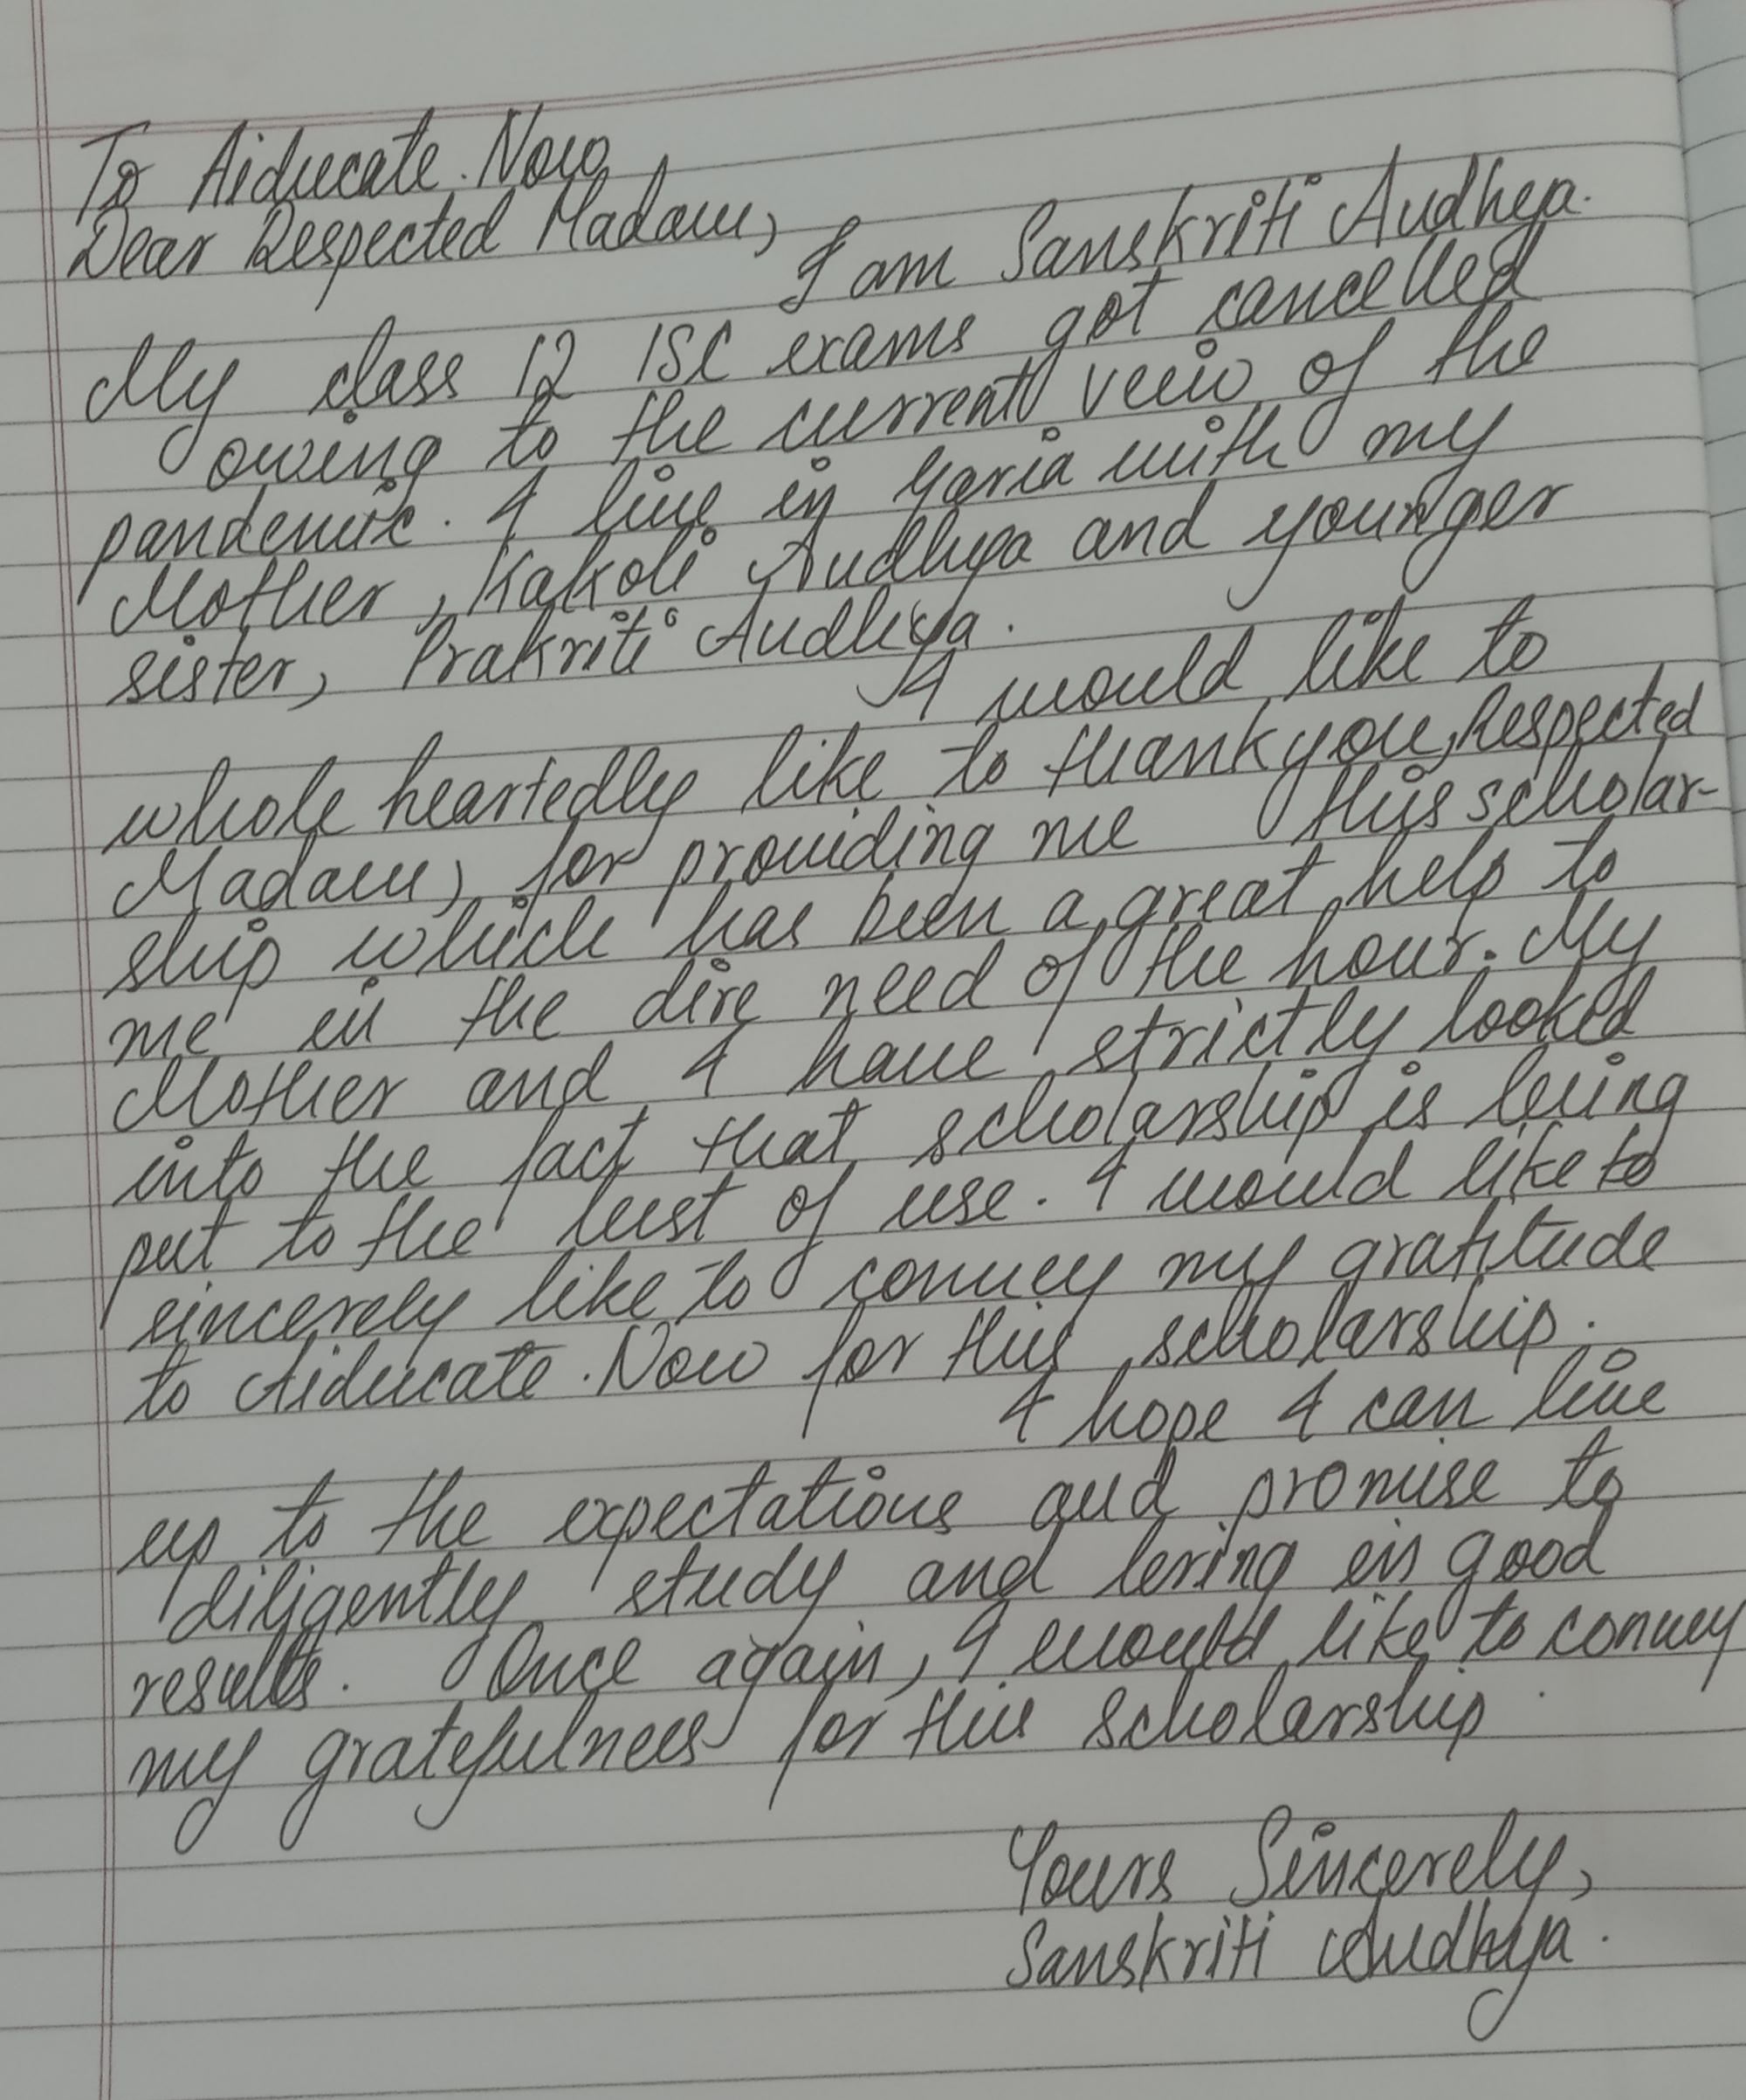 To Aiducate.Now,
Dear Respected Madam,
I am Sanskriti Audhya.
My class 12 ISC exams got cancelled
owing to the current veiw of the
pandemic. I live in Garia with my
Mother, Kakoli Audhya and younger
sister, Prakriti Audhya.
I would like to
whole heartedly like to thankyou, Respected
Madam, for providing me this scholar-
ship which has been a great help to
me in the dire need of the hour. My
Mother and I have strictly looked
into the fact that scholarship is being
put to the best of use. I would like to
sincerely like to convey my gratitude
to Aiducate.Now for this scholarship.
I hope I can live
up to the expectations and promise to
diligently study and bring in good
results. Once again, I would like to convey
my gratefulness for this scholarship.
Yours Sincerely,
Sanskriti Audhya.